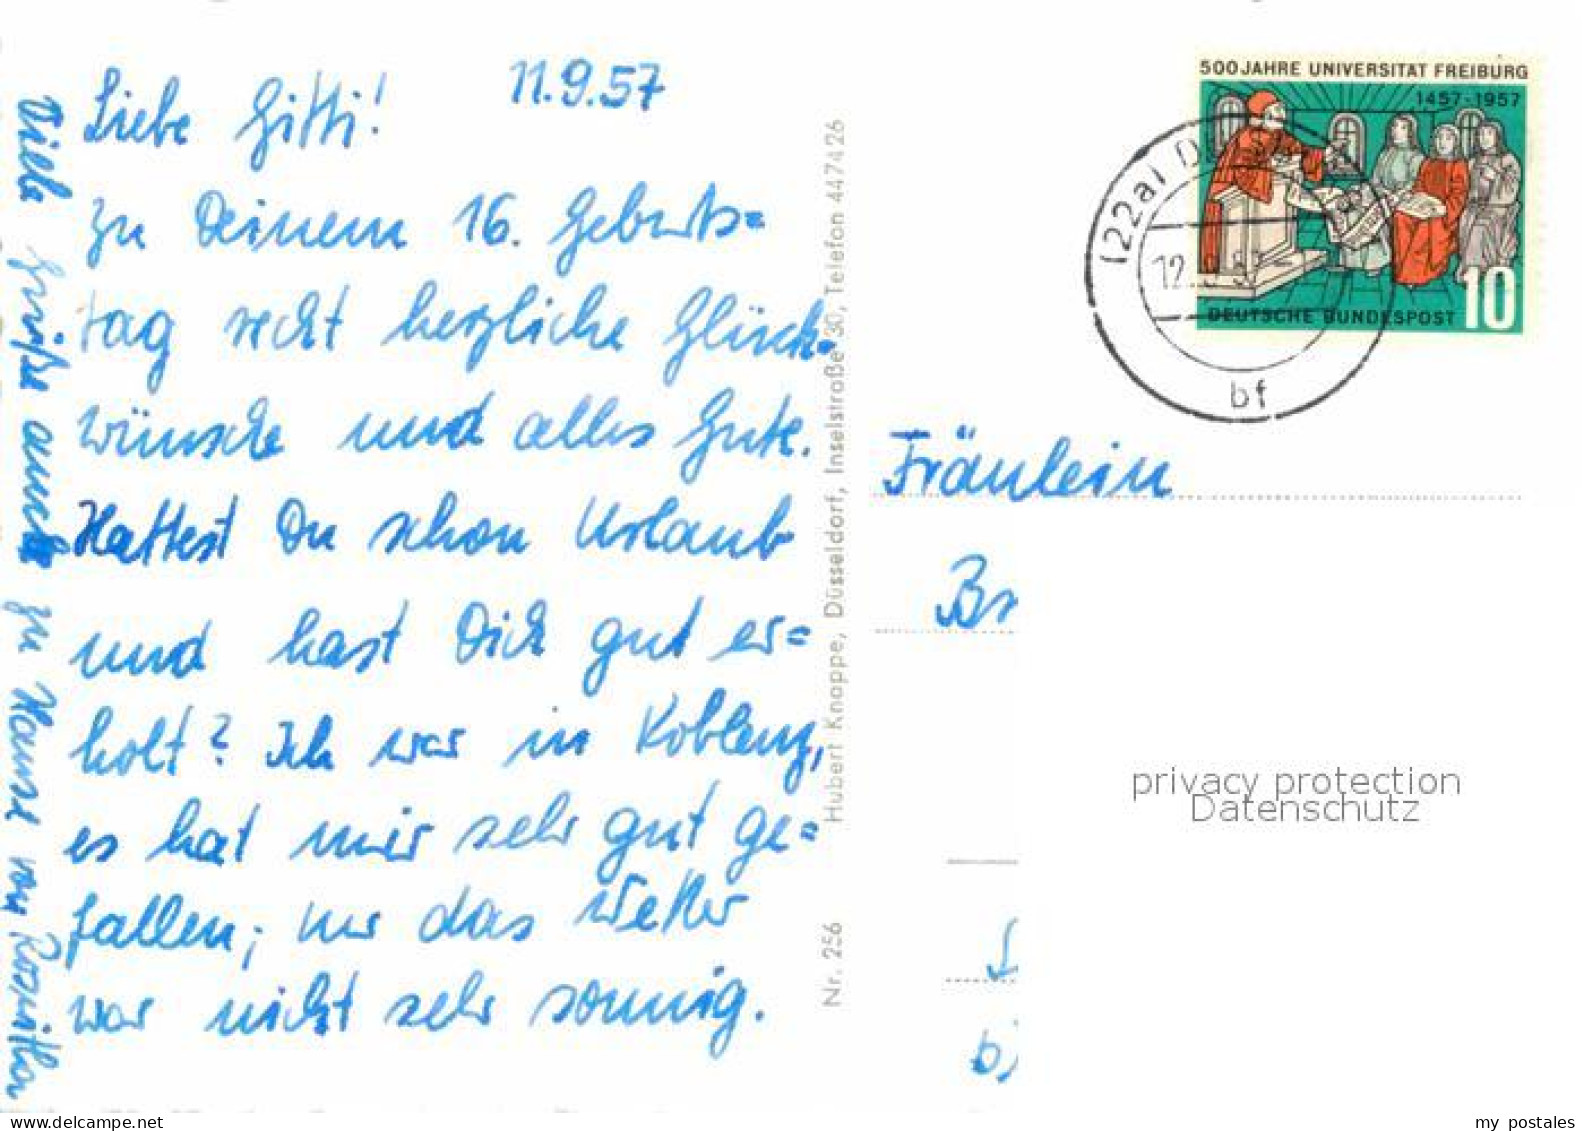 11.9.57
Liebe Gitti!
zu Deinem 16. Geburts=
tag recht herzliche Glück=
wünsche und alles Gute.
Hattest Du schon Urlaub
und hast Dich gut er=
holt? Ich war in Koblenz,
es hat mir sehr gut ge=
fallen; nur das Wetter
war nicht sehr sonnig.
Viele Grüße auch zu Hause von Roswitha
Nr. 256 Hubert Knoppe, Düsseldorf, Inselstraße 30, Telefon 447426
500 JAHRE UNIVERSITÄT FREIBURG
1457-1957
DEUTSCHE BUNDESPOST 10
(22a)
12.9.57
bf
Fräulein
privacy protection
Datenschutz
www.delcampe.net
my postales